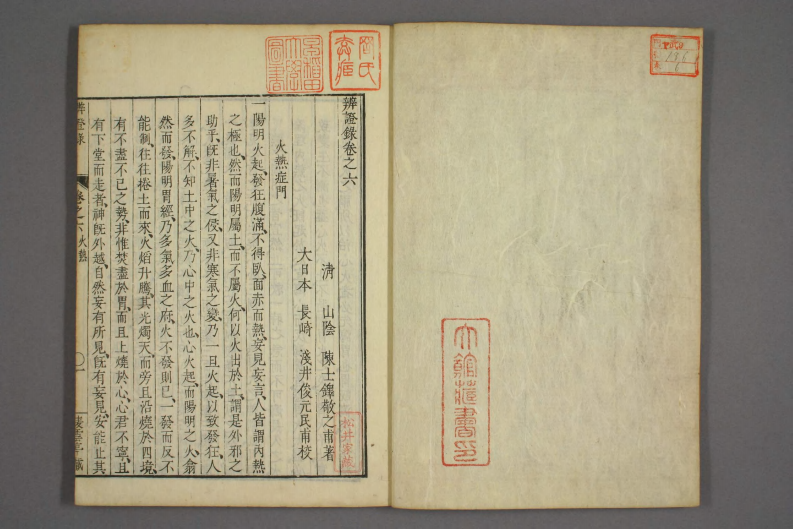 辨證錄卷之六
清 山陰 陳士鐸敬之甫著
大日本 長崎 淺井俊元民甫校
火熱症門
一陽明火起、發狂腹滿、不得臥、面赤而熱、妄見妄言、人皆謂內熱
之極也、然而陽明屬土、而不屬火、何以火出於土、謂是外邪之
助乎、旣非暑氣之侵、又非寒氣之變、乃一旦火起、以致發狂、人
多不解、不知土中之火、乃心中之火也、心火起、而陽明之火、翕
然而發、陽明胃經、乃多氣多血之府、火不發則已、一發而反不
能制、往往捲土而來、火焰升騰、其光燭天、而旁且沿燒於四境、
有不盡不已之勢、非惟焚盡於胃、而且上燒於心、心君不寧、且
有下堂而走者、神旣外越、自然妄有所見、旣有妄見、安能止其
辨證錄
卷之六火熱
一
松井家藏
早稻田大學圖書